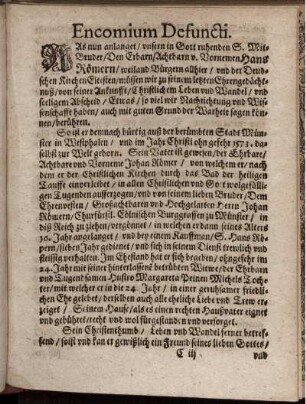 Encomium Defuncti.
WAs nun anlanget / vnsern in Gott ruhenden S. Mit-
Bruder / Den Erbarn / Achtbarn v. Vornemen Hans
Römern / weiland Bürgern allhier / vnd der Deud-
schen Kirchen Eltesten / müssen wir zu seinem letzten Ehrengedächt-
nuß / von seiner Ankunfft / Christlichem Leben vnd Wandel / vnd
seeligem Abscheid / Etwas / so viel wir Nachrichtung vnd Wis-
senschafft haben / auch mit guten Grund der Warheit sagen kön-
nen / berühren.
So ist er demnach bürtig auß der berümbten Stadt Mün-
ster in Westphalen / vnd im Jahr Christi ohngefehr 1573. da-
selbst zur Welt geborn. Sein Vater ist gewesen / der Ehrbare /
Achtbare vnd Vorneme Johan Römer / von welchem er / nach
dem er der Christlichen Kirchen durch das Bad der heiligen
Tauffe einverleibet / in allen Christlichen vnd Gott wolgefälli-
gen Tugenden aufferzogen / vnd von seinem lieben Bruder / Dem
Ehrenvesten / Großachtbaren vnd Hochgelarten Herrn Johan
Römern / Churfürstl. Cölnischen Burggraffen zu Münster / in
diß Reich zu ziehen / vergönnet / in welchen er dann seines Alters
30. Jahr angelanget / vnd bey einem Kauffman / S. Hans Rö-
pern / sieben Jahr gedienet / vnd sich in seinen Dienst trewlich vnd
fleissig verhalten. Im Ehestand hat er sich begeben / ohngefehr im
24. Jahr mit seiner hinterlassene betrübten Witwe / der Ehrbarn
vnd Tugendsamen Husfro Margareta Peinen Michels Toch-
ter / mit welcher er in die 24 Jahr / in einer geruhsamer friedli-
chen Ehe gelebet / derselben auch alle eheliche Liebe vnd Trew er-
zeiget / Seinem Hause / als es einen rechten Haußvater eignet
vnd gebühret / recht vnd wol fürgestanden vnd versorget.
Sein Christenthumb / Leben vnd Wandel ferner betref-
fend / so ist vnd kan er gewißlich ein Freund seines lieben Gottes /
C iij vnd